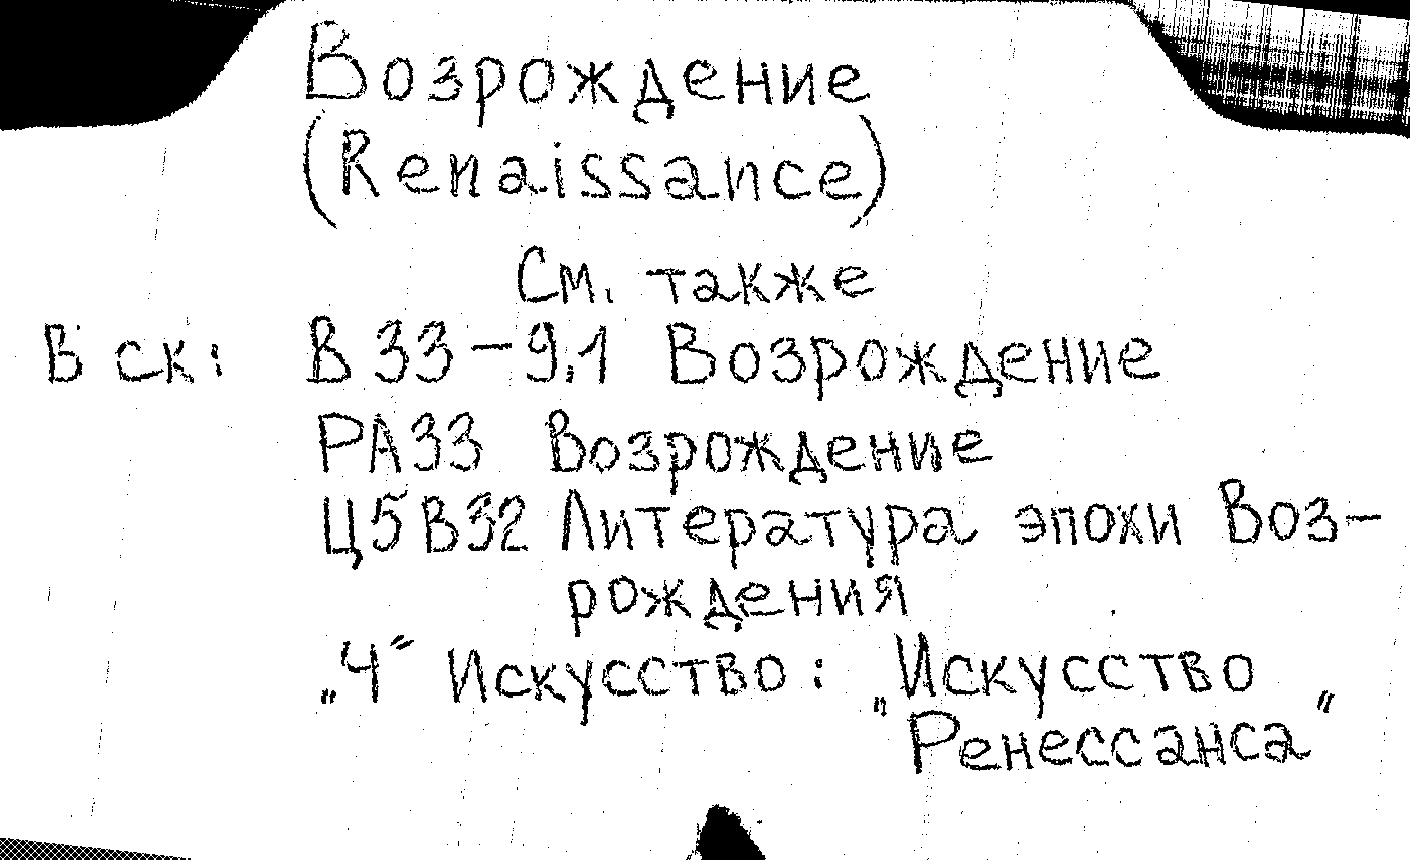 Возрождение
(Renaissance)
См. также
В ск: В 33-9.1 Возрождение
РА33 Возрождение
Ц5В32 Литература эпохи Воз-
рождения
„Ч" Искусство: „Искусство
Ренессанса"